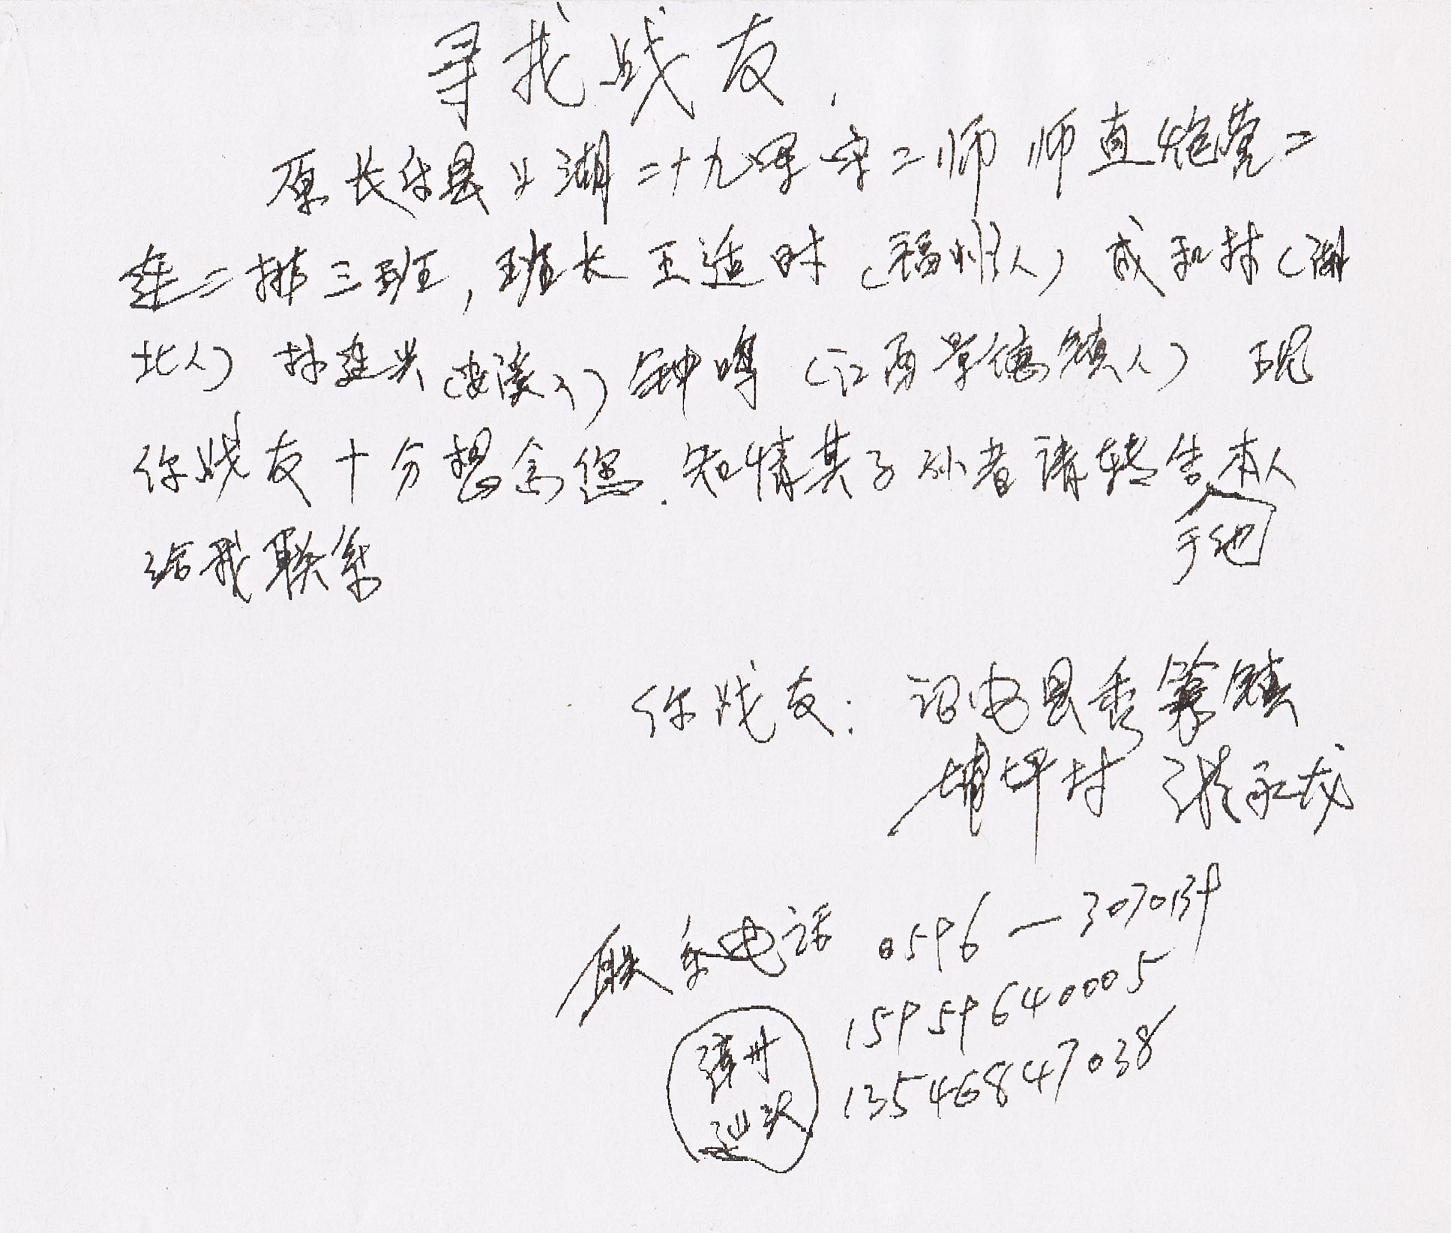 寻找战友.
原长乐县 湖二十九军 二师 师直炮营二
连二排三班, 班长 王适时 (福州人) 成和林 (湖
北人) 林连兴 (安溪人) 钟鸣 (江西景德镇人) 现
你战友十分想念您. 知情其子孙者请转告本人
于他
给我联系
你战友: 诏安县秀篆镇
埔坪村 永龙
联系电话 0596—3070139
15959640005
漳州
13546847038
汕头